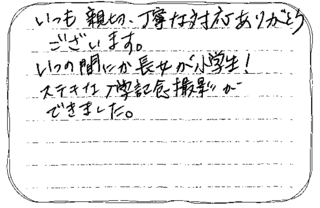 いつも親切、丁寧な対応ありがとう
ございます。
いつの間にか長女が小学生!
ステキな入学記念撮影が
できました。